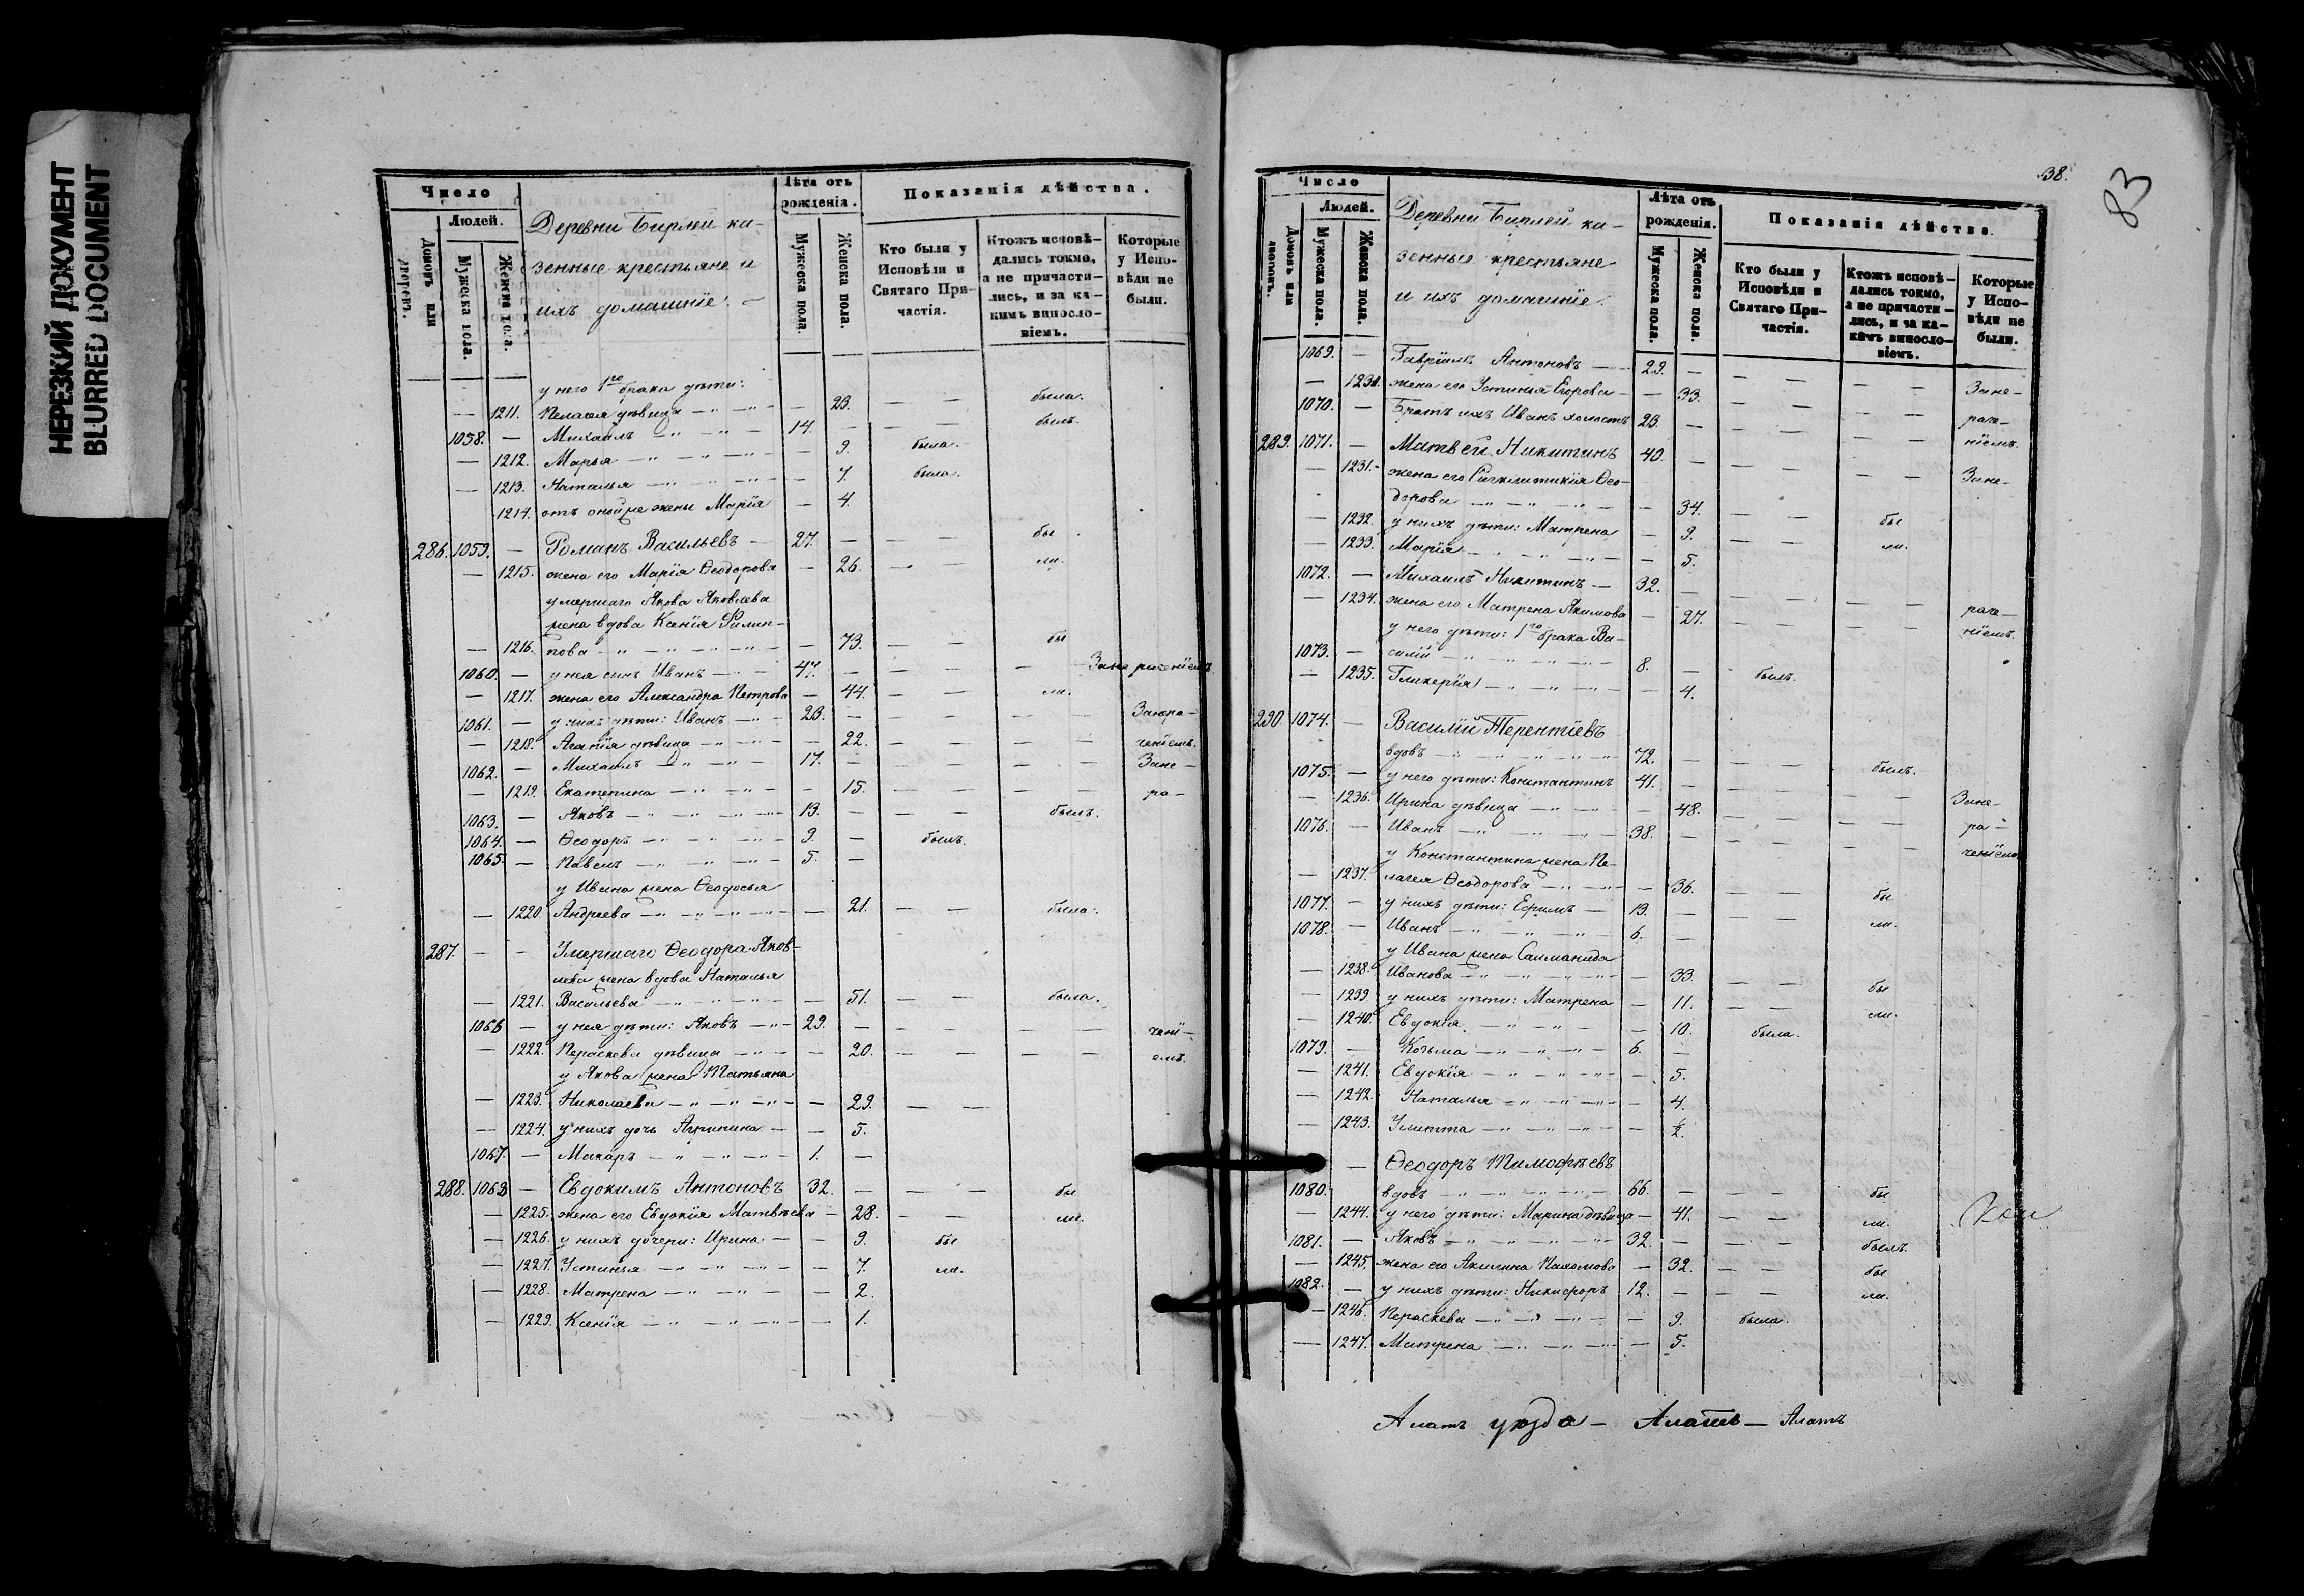 НЕРЕЗКИЙ ДОКУМЕНТ
BLURRED DOCUMENT
Число
Людей.
Домовъ или дворовъ.
Мужеска пола.
Женска пола.
Деревни Бирлей ка-
зенные крестьяне и
ихъ домашнїе:
Лѣта отъ рожденія.
Мужеска пола.
Женска пола.
Показанія дѣйства.
Кто были у Исповѣди и Святаго Причастія.
Ктожъ исповѣ-
дались токмо,
а не причасти-
лись, и за ка-
кимъ винословіемъ.
Которые у Исповѣди не были.
у него 1го брака дѣти:
— 1211. Пелагея дѣвица — 23. — — была.
1058. — Михаилъ 14. — — — былъ.
— 1212. Марья — 9. была.
— 1213. Наталья — 7. была.
1214. отъ оной же жены Марїя — 4.
286. 1059. — Романъ Васильевъ — 27. — — — бы
— 1215. жена его Марїя Ѳеодорова — 26. — — ли.
умершаго Якова Яковлева
жена вдова Ксенїя Филип-
— 1216. пова — 73. — — бы
1060. — у нея сынъ Иванъ — 47. — — — — — Зане раченїемъ
— 1217. жена его Александра Петрова — 44. — — ли.
1061. — у нихъ дѣти: Иванъ — 23. — — — — —
— 1218. Агапїя дѣвица — 22. — — — — ченїемъ.
1062. — Михаилъ 17. — — — — — Зане-
— 1219. Екатерина — 15. — — — — ра-
1063. — Яковъ 13. — — — былъ.
1064. — Ѳеодоръ 9. — былъ.
1065. — Павелъ 5. —
у Ивана жена Ѳеодосья
— 1220. Андреева — 21. — — была.
287. — — Умершаго Ѳеодора Яков-
лева жена вдова Наталья
— 1221. Васильева — 51. — — была.
1066 — у нея дѣти: Яковъ — 29. — — — — — ченї-
— 1222. Параскева дѣвица — 20. — — — — емъ.
у Якова жена Татьяна
— 1223. Николаева — 29. — —
— 1224. у нихъ дочь Агрипина — — 5.
1067. — Макаръ 1. —
288. 1068 — Евдокимъ Антоновъ 32. — — — бы
— 1225. жена его Евдокїя Матвѣева — 28. — — ли.
— 1226. у нихъ дочери: Ирина — — 9. бы
— 1227. Устинья — 7. ли.
— 1228. Матрена — 2.
— 1229. Ксенїя — 1.
38.
83
Число
Людей.
Домовъ или дворовъ.
Мужеска пола.
Женска пола.
Деревни Бирлей ка-
зенные крестьяне
и ихъ домашнїе:
Лѣта отъ рожденія.
Мужеска пола.
Женска пола.
Показанія дѣйства.
Кто были у Исповѣди и Святаго Причастія.
Ктожъ исповѣ-
дались токмо,
а не причасти-
лись, и за ка-
кимъ винословіемъ.
Которые у Исповѣди не были.
1069. — Гаврїилъ Антоновъ — 29. — — — — — Зане-
— 1230. жена его Устинья Егорова — — 33. — — — —
1070. — Братъ ихъ Иванъ холостъ 23. — — — — — раче-
289. 1071. — Матвей Никитинъ 40. — — — — — нїемъ.
— 1231. жена его Сигклитикїя Ѳео- Зане-
дорова — 34. — — бы
— 1232. у нихъ дѣти: Матрена — 9. — — ли.
— 1233. Марїя — 5.
1072. — Михаилъ Никитинъ — 32. — — — — — раче-
— 1234. жена его Матрена Якимова — 27. — — — — нїемъ.
у него дѣти: 1го брака Ва-
1073. — силїй 8. — былъ.
— 1235. Гликерїя — 4.
290. 1074. — Василїй Терентїевъ
вдовъ 72. — — — былъ.
1075. — у него дѣти: Константинъ 41. — — — — — Зане-
— 1236. Ирина дѣвица — 48. — — — — ра-
1076. — Иванъ 38. — — — — — ченїемъ
у Константина жена Пе-
— 1237. лагея Ѳеодорова — 36. — — бы
1077. — у нихъ дѣти: Ефимъ — 13. — — — ли.
1078. — Иванъ 6. —
у Ивана жена
— 1238. Иванова — 33. — — бы
— 1239. у нихъ дѣти: Матрена — 11. — — ли.
— 1240. Евдокїя — 10. была.
1079. — Козьма 6. —
— 1241. Евдокїя — 5.
— 1242. Наталья — 4.
— 1243. Улитта — ½.
— Ѳеодоръ Тимофѣевъ
1080. вдовъ 66. — — — бы
— 1244. у него дѣти: Марина дѣвица — 41. — — ли.
1081. — Яковъ 32. — — — былъ.
— 1245. жена его Акилина Пахомова — 32. — — бы
1082. — у нихъ дѣти: Никифоръ 12. — — — ли.
— 1246. Параскева — 9. была.
— 1247. Матрена — 5.
Алатъ уѣзда — Алатъ — Алатъ